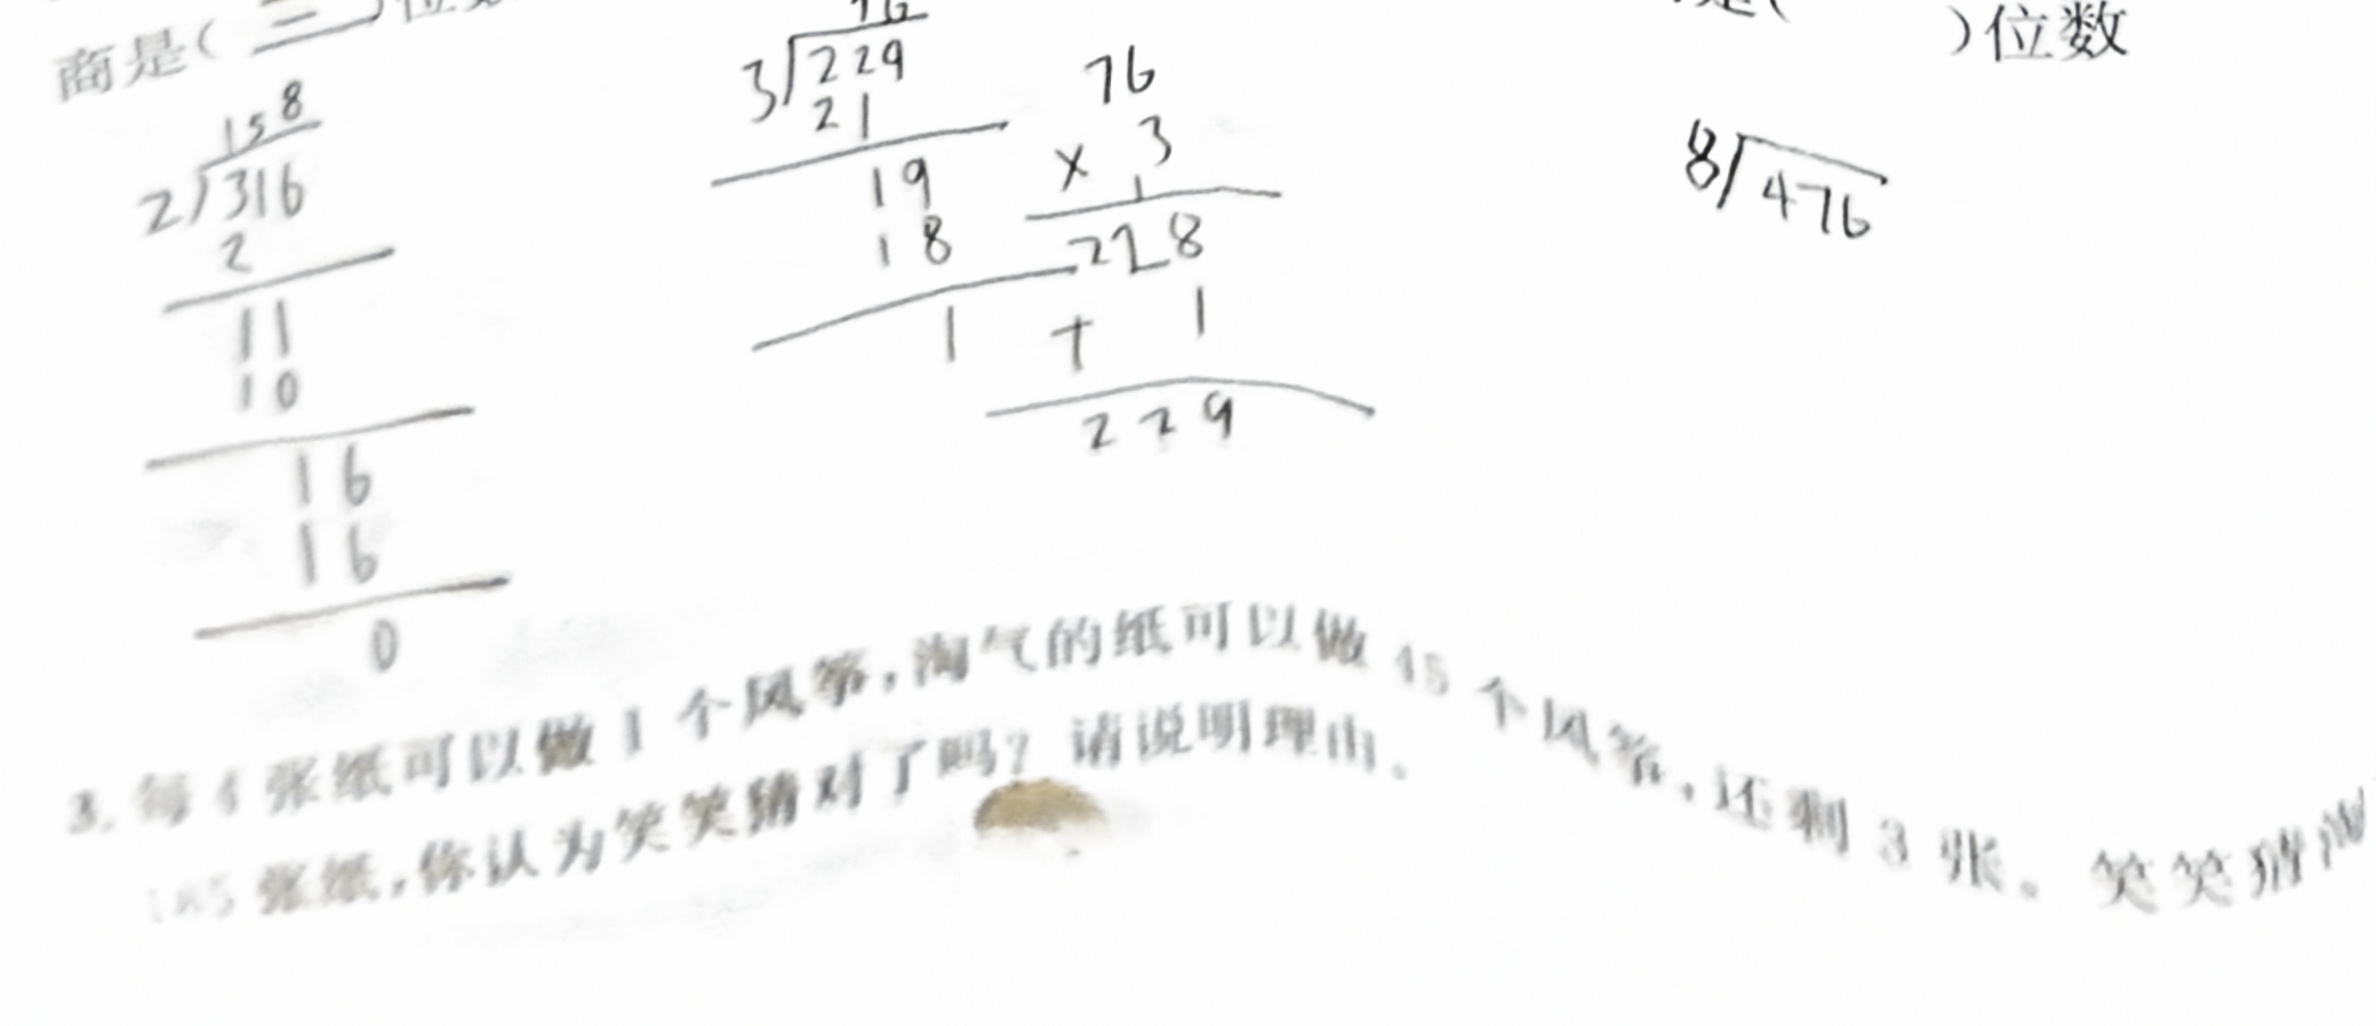 商是( 三 )位数
158
2)316
2
11
10
16
16
0
76
3)229
21
19
18
1
76
× 3
1
228
+ 1
229
)位数
8)476
3. 每 4 张纸可以做 1 个风筝,淘气的纸可以做 45 个风筝,还剩 3 张。笑笑猜
185 张纸,你认为笑笑猜对了吗？请说明理由。